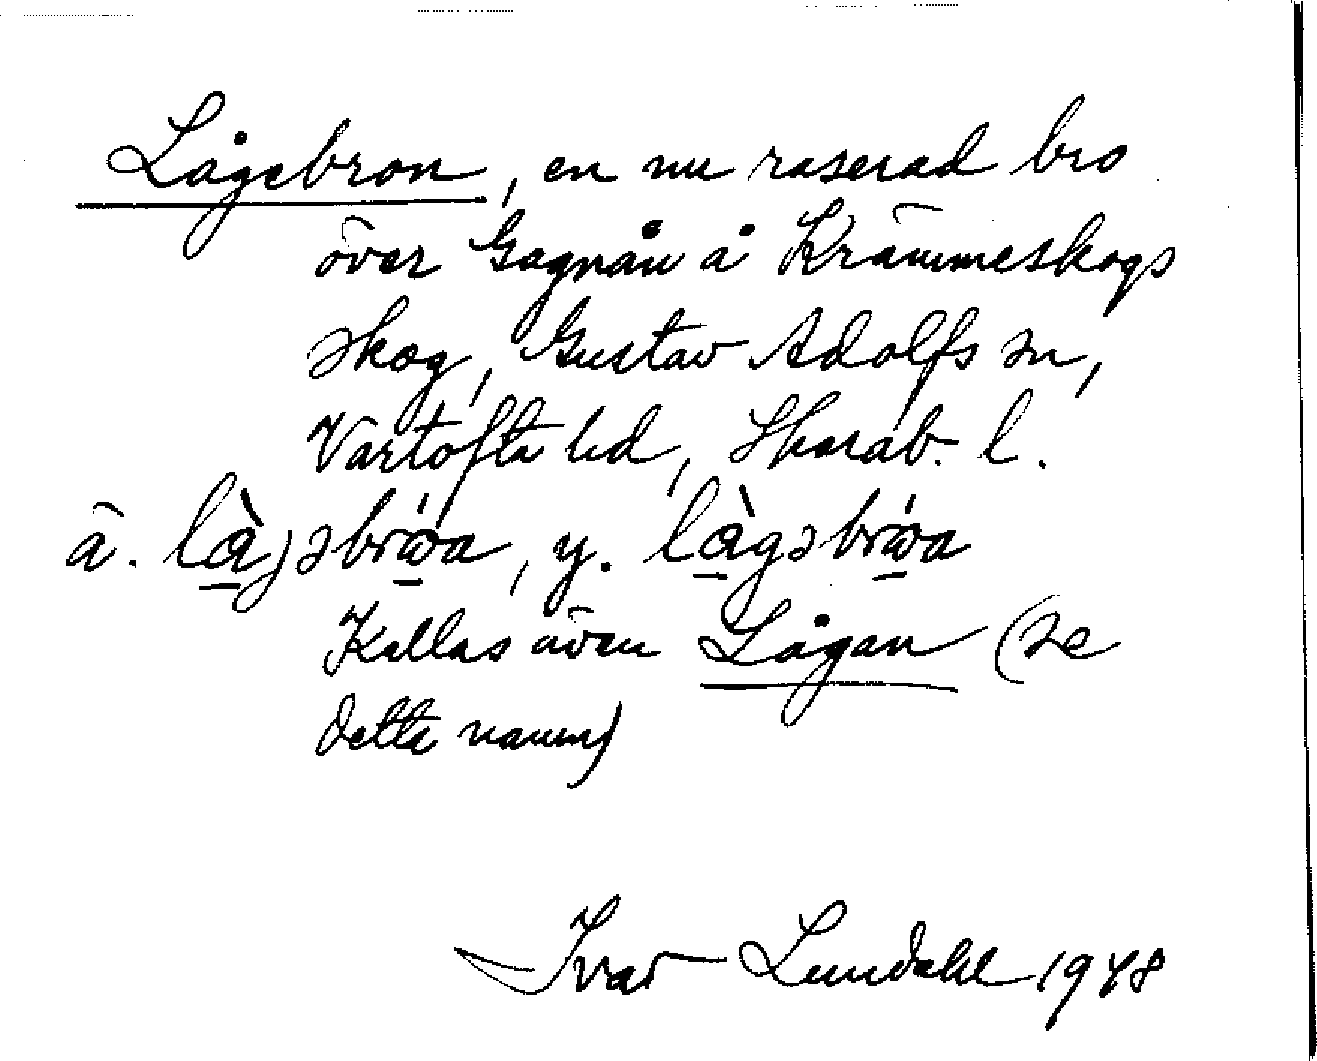 Lågebron, en nu raserad bro
över Gagnån å Krämmeskogs
skog, Gustav Adolfs sn,
Vartofta hd, Skarab. l.
ä. lågəbrωa, y. lågəbrωa
Kallas även Lågan (se
detta namn)
Ivar Lundahl 1948